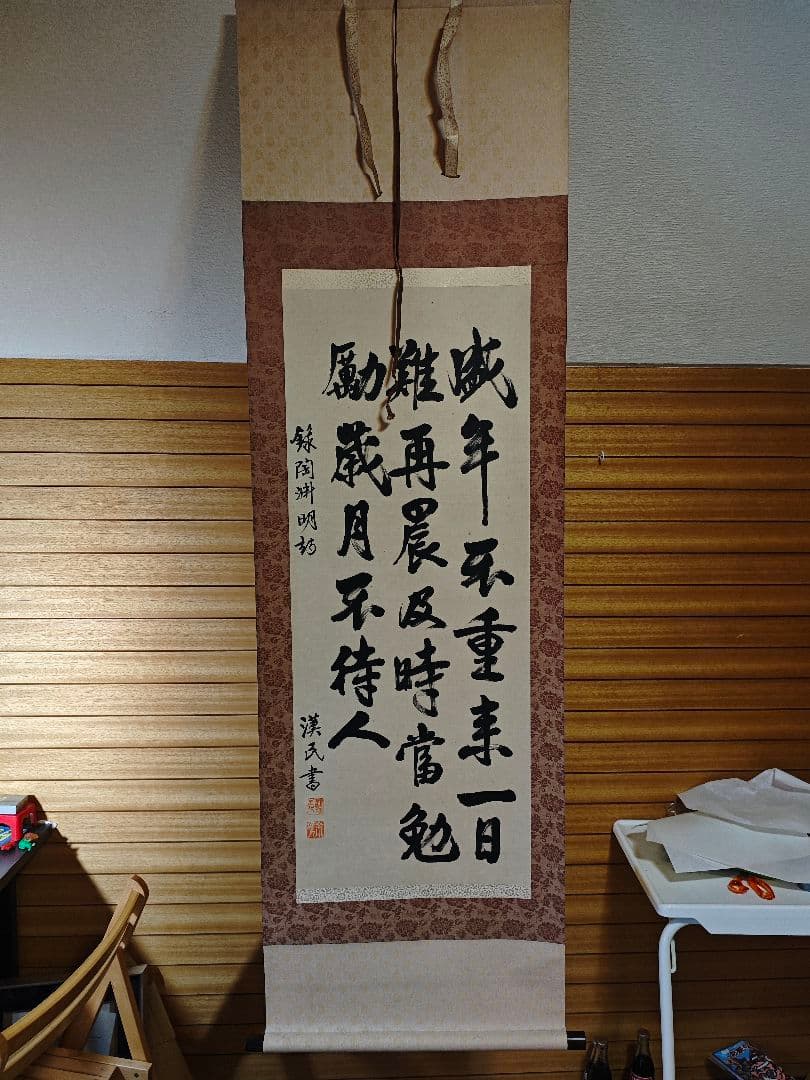 盛年不重来一日
難再晨及時當勉
勵歳月不待人
錄陶淵明詩
漢民書